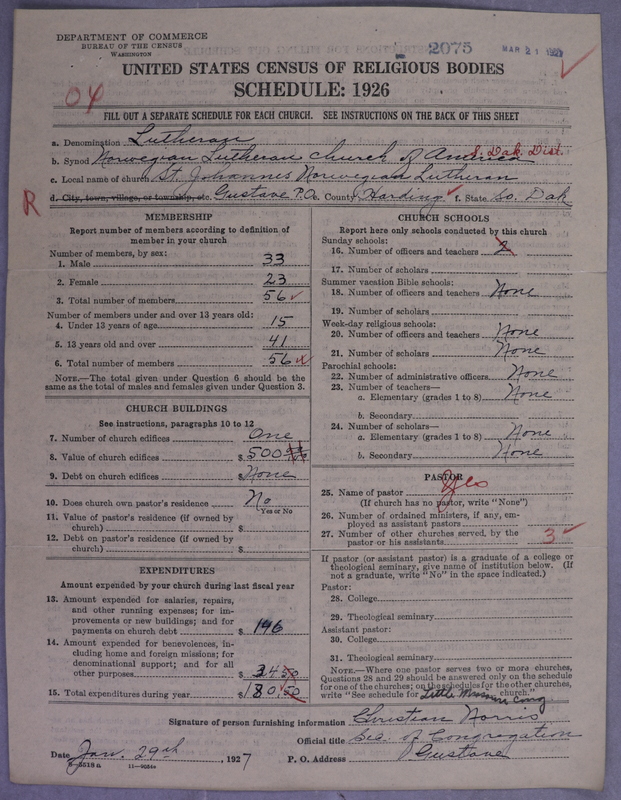 DEPARTMENT OF COMMERCE
BUREAU OF THE CENSUS
WASHINGTON
2075
MAR 21
UNITED STATES CENSUS OF RELIGIOUS BODIES
SCHEDULE: 1926
04
FILL OUT A SEPARATE SCHEDULE FOR EACH CHURCH. SEE INSTRUCTIONS ON THE BACK OF THIS SHEET
a. Denomination Lutheran
b. Synod Norwegian Lutheran Church of America S. Dak. Dist.
c. Local name of church St. Johannes Norwegian Lutheran
R
d. City, town, village, or township, etc. Gustave P.O. e. County Harding f. State So. Dak
MEMBERSHIP
Report number of members according to definition of
member in your church
Number of members, by sex:
1. Male 33
2. Female 23
3. Total number of members 56
Number of members under and over 13 years old:
4. Under 13 years of age 15
5. 13 years old and over 41
6. Total number of members 56
NOTE.—The total given under Question 6 should be the
same as the total of males and females given under Question 3.
CHURCH BUILDINGS
See instructions, paragraphs 10 to 12
7. Number of church edifices One
8. Value of church edifices $ 500
9. Debt on church edifices $ None
10. Does church own pastor's residence No
Yes or No
11. Value of pastor's residence (if owned by
church) $
12. Debt on pastor's residence (if owned by
church) $
EXPENDITURES
Amount expended by your church during last fiscal year
13. Amount expended for salaries, repairs,
and other running expenses; for im-
provements or new buildings; and for
payments on church debt $ 146
14. Amount expended for benevolences, in-
cluding home and foreign missions; for
denominational support; and for all
other purposes $ 34.50
15. Total expenditures during year $ 180.50
CHURCH SCHOOLS
Report here only schools conducted by this church
Sunday schools:
16. Number of officers and teachers 2
17. Number of scholars
Summer vacation Bible schools:
18. Number of officers and teachers None
19. Number of scholars
Week-day religious schools:
20. Number of officers and teachers None
21. Number of scholars None
Parochial schools:
22. Number of administrative officers None
23. Number of teachers—
a. Elementary (grades 1 to 8) None
b. Secondary
24. Number of scholars—
a. Elementary (grades 1 to 8) None
b. Secondary None
PASTOR
25. Name of pastor Yes
(If church has no pastor, write "None")
26. Number of ordained ministers, if any, em-
ployed as assistant pastors
27. Number of other churches served, by the
pastor or his assistants 3
If pastor (or assistant pastor) is a graduate of a college or
theological seminary, give name of institution below. (If
not a graduate, write "No" in the space indicated.)
Pastor:
28. College
29. Theological seminary
Assistant pastor:
30. College
31. Theological seminary
NOTE.—Where one pastor serves two or more churches,
Questions 28 and 29 should be answered only on the schedule
for one of the churches; on the schedules for the other churches,
write "See schedule for Little Missouri Cong. church."
Signature of person furnishing information Christian Norris
Official title Sec. of Congregation
Date Jan. 29th, 1927 P. O. Address Gustave
11-9884